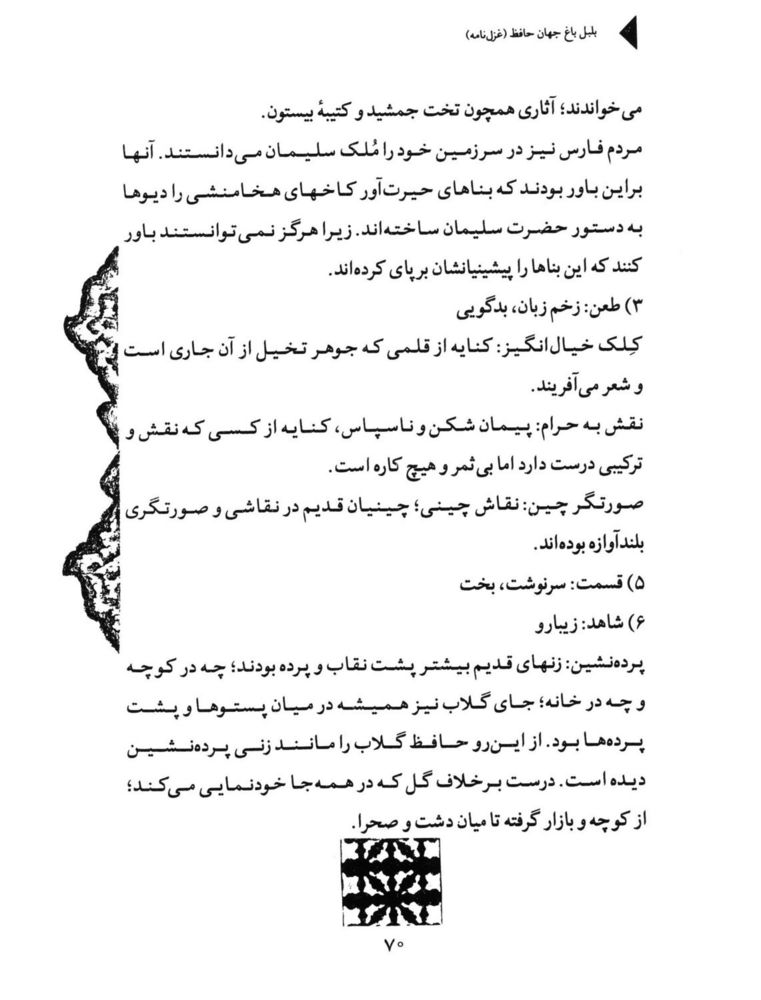 بلبل باغ جهان حافظ (غزل‌نامه)
می‌خواندند؛ آثاری همچون تخت جمشید و کتیبهٔ بیستون.
مردم فارس نیز در سرزمین خود را مُلک سلیمان می‌دانستند. آنها
براین باور بودند که بناهای حیرت‌آور کاخهای هخامنشی را دیوها
به دستور حضرت سلیمان ساخته‌اند. زیرا هرگز نمی‌توانستند باور
کنند که این بناها را پیشینیانشان برپای کرده‌اند.
۳) طعن: زخم زبان، بدگویی
کِلک خیال‌انگیز: کنایه از قلمی که جوهر تخیل از آن جاری است
و شعر می‌آفریند.
نقش به حرام: پیمان شکن و ناسپاس، کنایه از کسی که نقش و
ترکیبی درست دارد اما بی‌ثمر و هیچ کاره است.
صورتگر چین: نقاش چینی؛ چینیان قدیم در نقاشی و صورتگری
بلندآوازه بوده‌اند.
۵) قسمت: سرنوشت، بخت
۶) شاهد: زیبارو
پرده‌نشین: زنهای قدیم بیشتر پشت نقاب و پرده بودند؛ چه در کوچه
و چه در خانه؛ جای گلاب نیز همیشه در میان پستوها و پشت
پرده‌ها بود. از این‌رو حافظ گلاب را مانند زنی پرده‌نشین
دیده است. درست برخلاف گل که در همه‌جا خودنمایی می‌کند؛
از کوچه و بازار گرفته تا میان دشت و صحرا.
۷۰